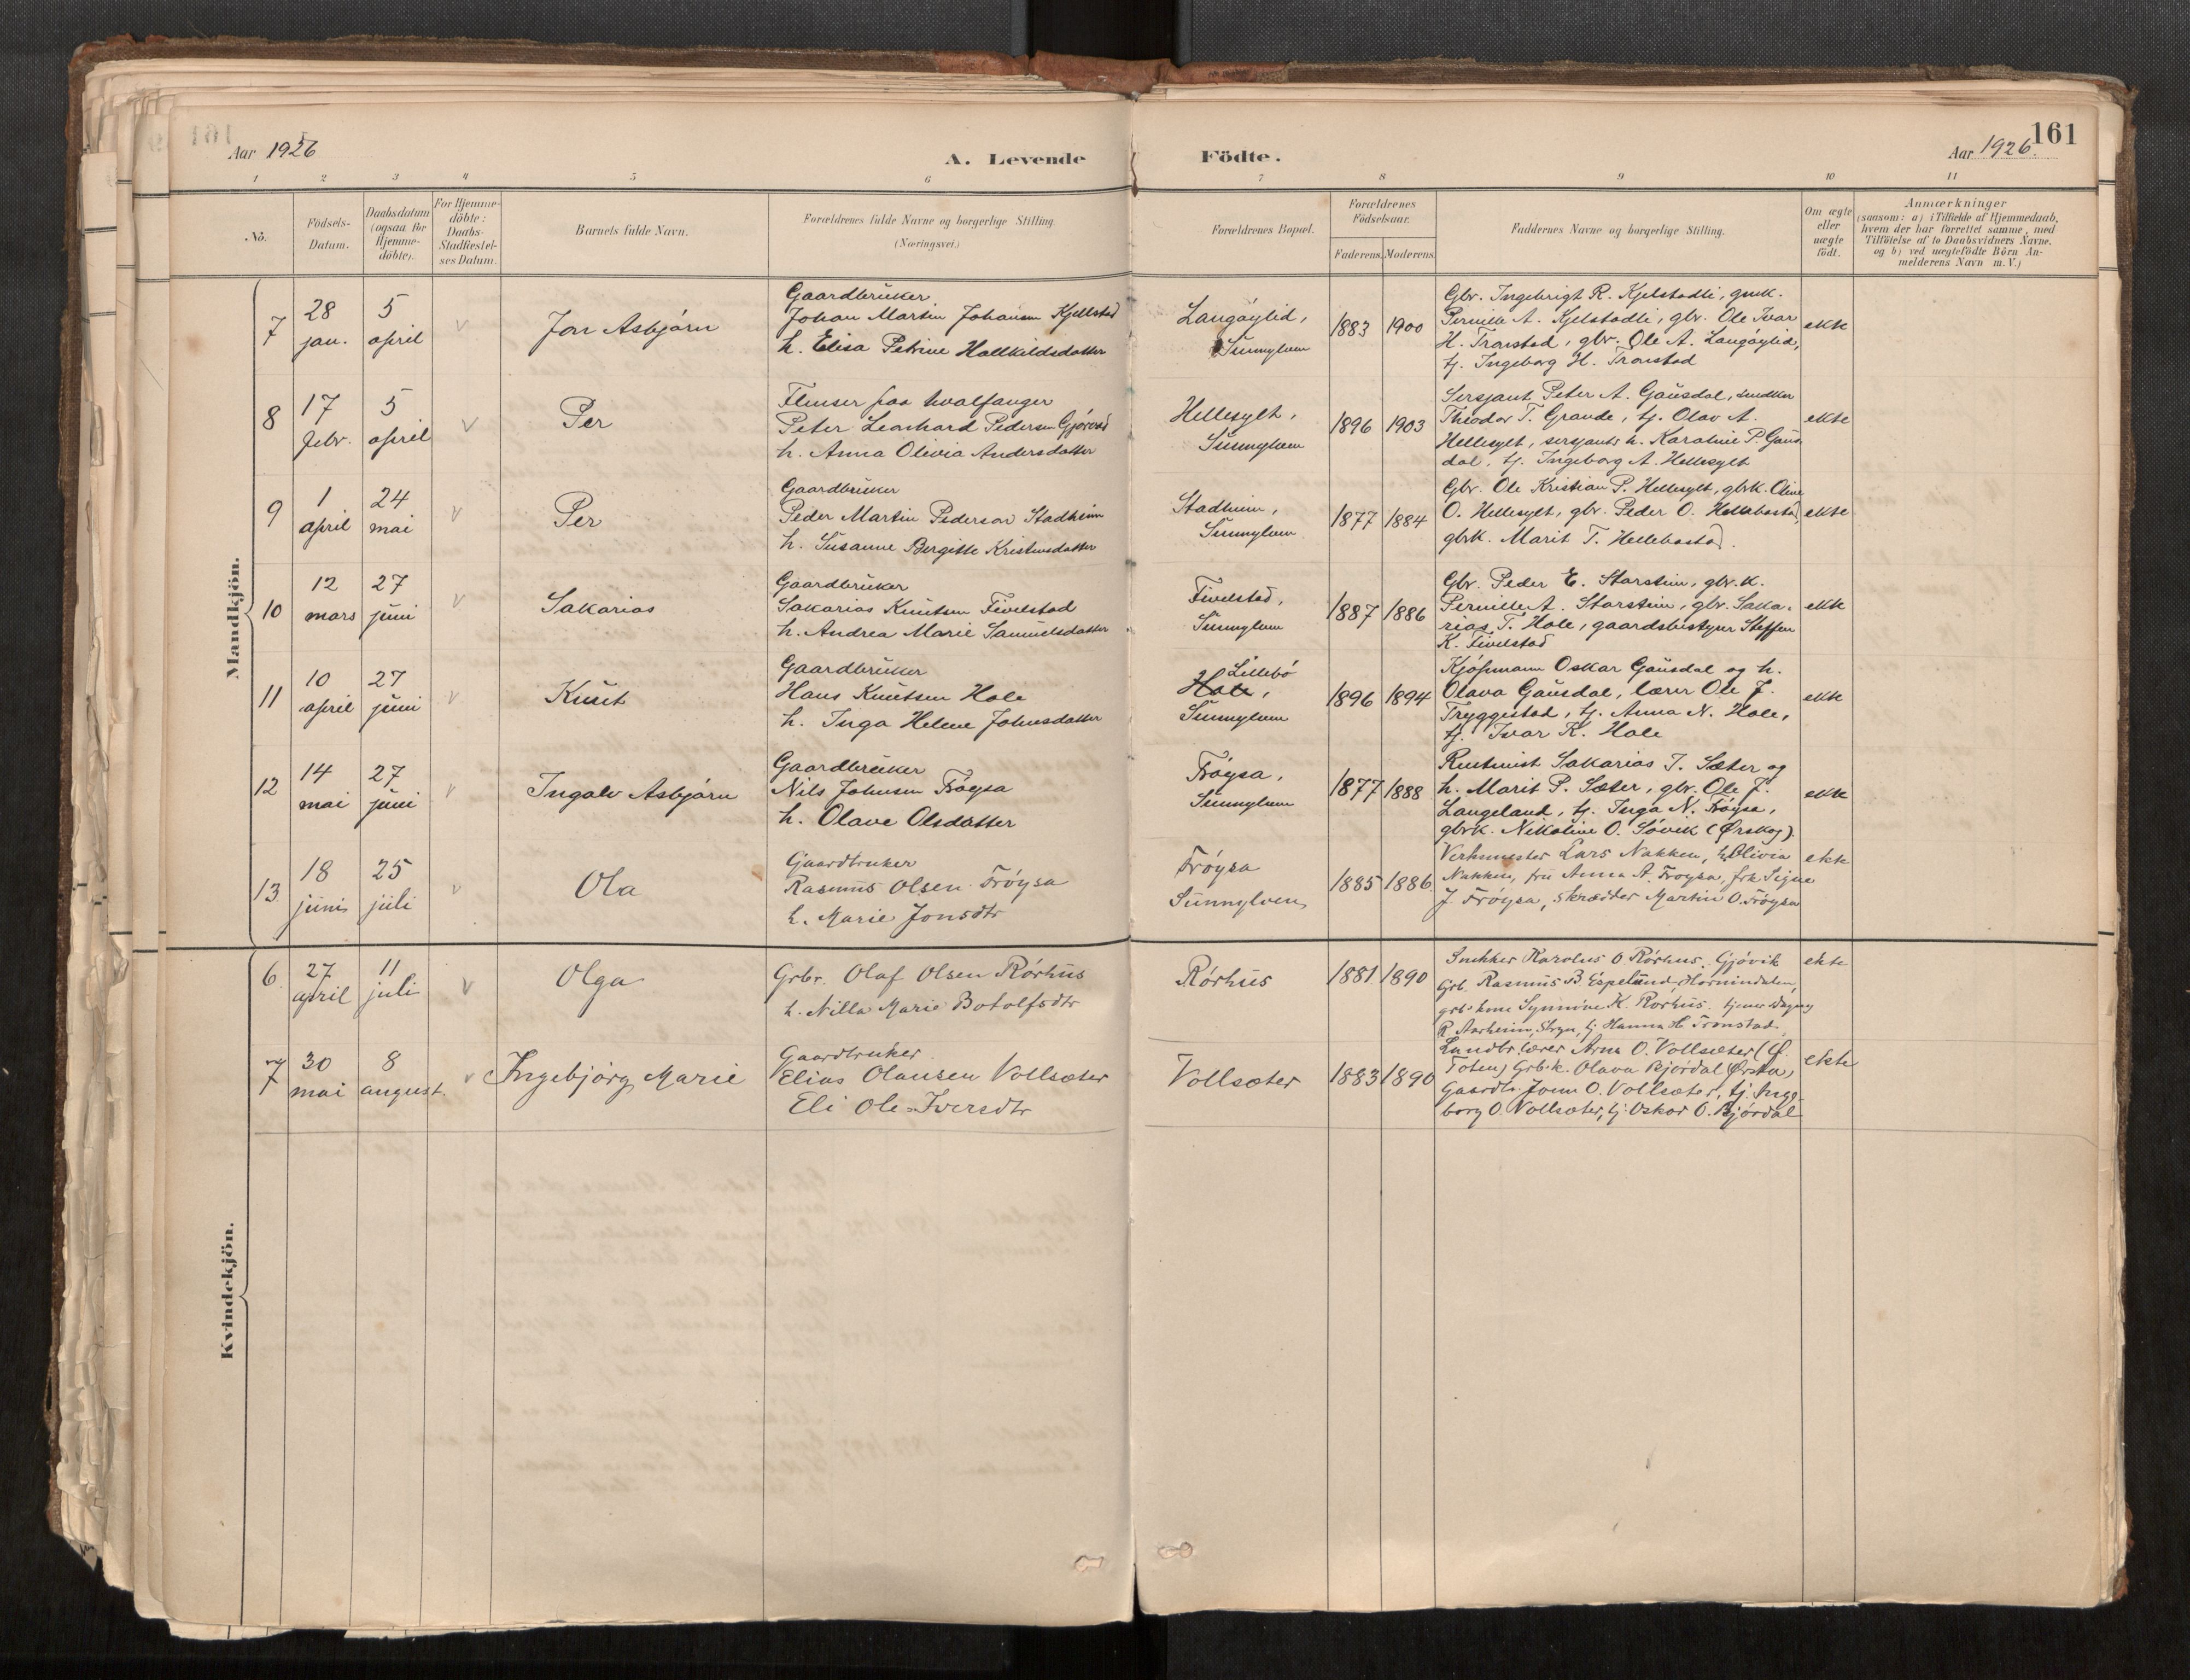 Aar 1926
A. Levende Födte.
161
Aar 1926.
1 2 3 4 5 6 7 8 9 10 11
No.
Födsels-
Datum.
Daabsdatum
(ogsaa for
Hjemme-
döbte).
For Hjemme-
döbte:
Daabs-
Stadfæstel-
ses Datum.
Barnets fulde Navn.
Forældrenes fulde Navne og borgerlige Stilling.
(Næringsvei.)
Forældrenes Bopæl.
Forældrenes
Födselsaar.
Faderens. Moderens.
Faddernes Navne og borgerlige Stilling.
Om ægte
eller
uægte
födt.
Anmærkninger
(saasom: a) i Tilfælde af Hjemmedaab,
hvem der har forrettet samme, med
Tilföielse af to Daabsvidners Navne.
og b) ved uægtefödte Börn An-
melderens Navn m. V.)
Mandkjön.
7
28
jan.
5
april
Jon Asbjörn
Gaardbruker
Johan Martin Johansen Kjellstad
h. Elisa Petrine Hallkildsdatter
Langöylid,
Sunnylven
1883 1900
Gbr. Ingebrigt R. Kjelstadli, gmk.
Pernille A. Kjelstadli, gbr. Ole Ivar
H. Tronstad, gbr. Ole A. Langöylid,
tj. Ingeborg H. Tronstad
ekte
8
17
febr.
5
april
Per
Flenser paa hvalfanger
Peter Leonhard Pedersen Gjørvad
h. Anna Olivia Andersdatter
Hellesylt,
Sunnylven
1896 1903
Sersjant Peter A. Gausdal, snedker
Theodor T. Grande, tj. Olav A.
Hellesylt, sersjants h. Karoline P. Gaus
dal, tj. Ingeborg A. Hellesylt
ekte
9
1
april
24
mai
Per
Gaardbruker
Peder Martin Pederson Stadheim
h. Susanne Bergitte Kristensdatter
Stadheim,
Sunnylven
1877 1884
Gbr. Ole Kristian P. Hellesylt, gbrk. Oline
O. Hellesylt, gbr. Peder O. Hellebostad,
gbrk. Marit T. Hellebostad.
ekte
10
12
mars
27
juni
Sakarias
Gaardbruker
Sakarias Knutsen Fivelstad
h. Andrea Marie Samuelsdatter
Fivelstad,
Sunnylven
1887 1886
Gbr. Peder E. Storstein, gbr.k.
Pernille A. Storstein, gbr. Saka-
rias T. Hole, gaardsbestyrer Steffen
K. Fivelstad
ekte
11
10
april
27
juni
Knut
Gaardbruker
Hans Knutsen Hole
h. Inga Helene Johnsdatter
Lillebö
Hole,
Sunnylven
1896 1894
Kjöpmann Oskar Gausdal og h.
Olava Gausdal, lærer Ole J.
Tryggestad, tj. Anna N. Hole,
tj. Ivar K. Hole
ekte
12
14
mai
27
juni
Ingolv Asbjörn
Gaardbruker
Nils Johnsen Fröysa
h. Olave Olsdatter
Fröysa,
Sunnylven
1877 1888
Rentenist Sakarias I. Sæter og
h. Marit P. Sæter, gbr. Ole J.
Langeland, tj. Inga N. Fröysa,
gbrk. Nikoline O. Sövik (Ørskog).
ekte
13
18
juni
25
juli
Ola
Gaardbruker
Rasmus Olsen Fröysa
h. Marie Jonsdtr
Fröysa
Sunnylven
1885 1886.
Verksmester Lars Nakken, h. Olivia
Nakken, fru Anna A. Froysa, frk Signe
J. Fröysa, skrædder Martin O. Fröysa
ekte
Kvindekjön.
6
27
april
11
juli
Olga
Grbr. Olaf Olsen Rörhus
h. Nilla Marie Botolfsdtr
Rörhus
1881 1890
Snekker Karolus O Rörhus, Gjövik
Grb. Rasmus B. Espelund, Hornindalen,
grb. kone Synnöve K. Rorhus. tjener Dagny
R. Aarheim, Stryn, tj. Hanna H Tronstad.
ekte
7
30
mai
8
august.
Ingebjörg Marie
Gaardbruker
Elias Olausen Vollsæter
Eli Ole-Iversdtr
Vollsæter
1883 1890
Landbr.lærer Arne O. Vollsæter (Ö.
Toten) Grb.k. Olava Björdal Ørsta,
Gaardbr. Jonn O. Vollsæter, tj. Inge-
borg O. Vollsæter, tj. Oskar O. Björdal
ekte